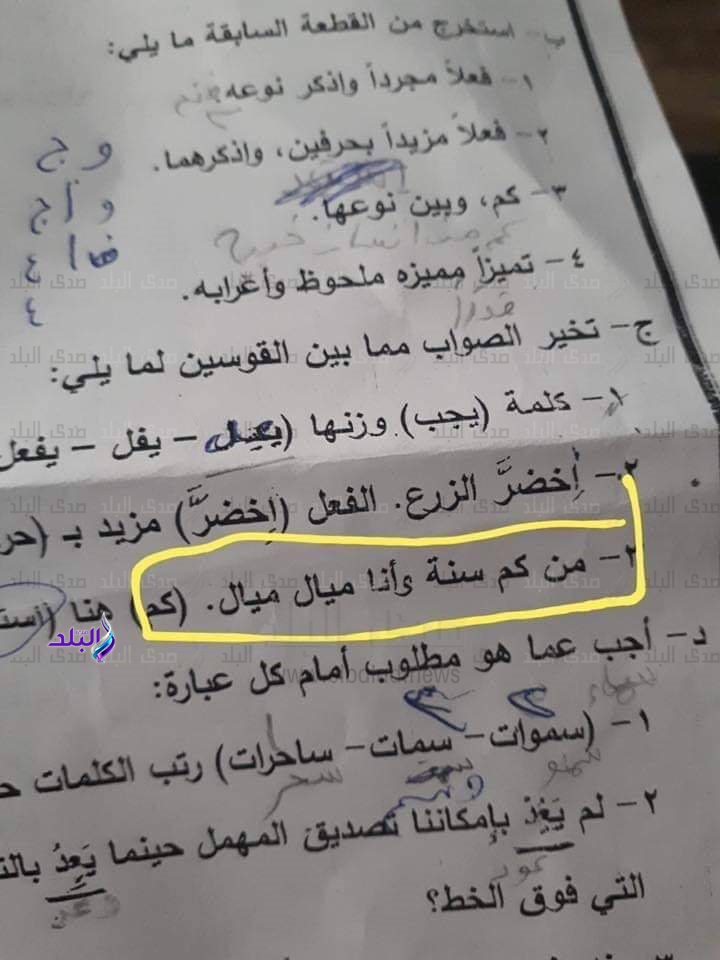 ب- استخرج من القطعة السابقة ما يلي:
١- فعلاً مجرداً واذكر نوعه.
٢- فعلاً مزيداً بحرفين، واذكرهما.
٣- كم، وبين نوعها.
٤- تميزاً مميزه ملحوظ وأعرابه.
قدراً
ج- تخير الصواب مما بين القوسين لما يلي:
١- كلمة (يجب) وزنها (يعل - يفل - يفعل
٢- اِخضرَّ الزرع. الفعل (اِخضرَّ) مزيد بـ (حر
٢- من كم سنة وأنا ميال ميال. (كم) هنا (است
د- أجب عما هو مطلوب أمام كل عبارة:
١- (سموات- سمات- ساحرات) رتب الكلمات حـ
سمو
سحر
٢- لم يَعُدْ بإمكاننا تصديق المهمل حينما يَعِدُ بالتـ
عود
وعد
التي فوق الخط؟
صدى البلد
البلد